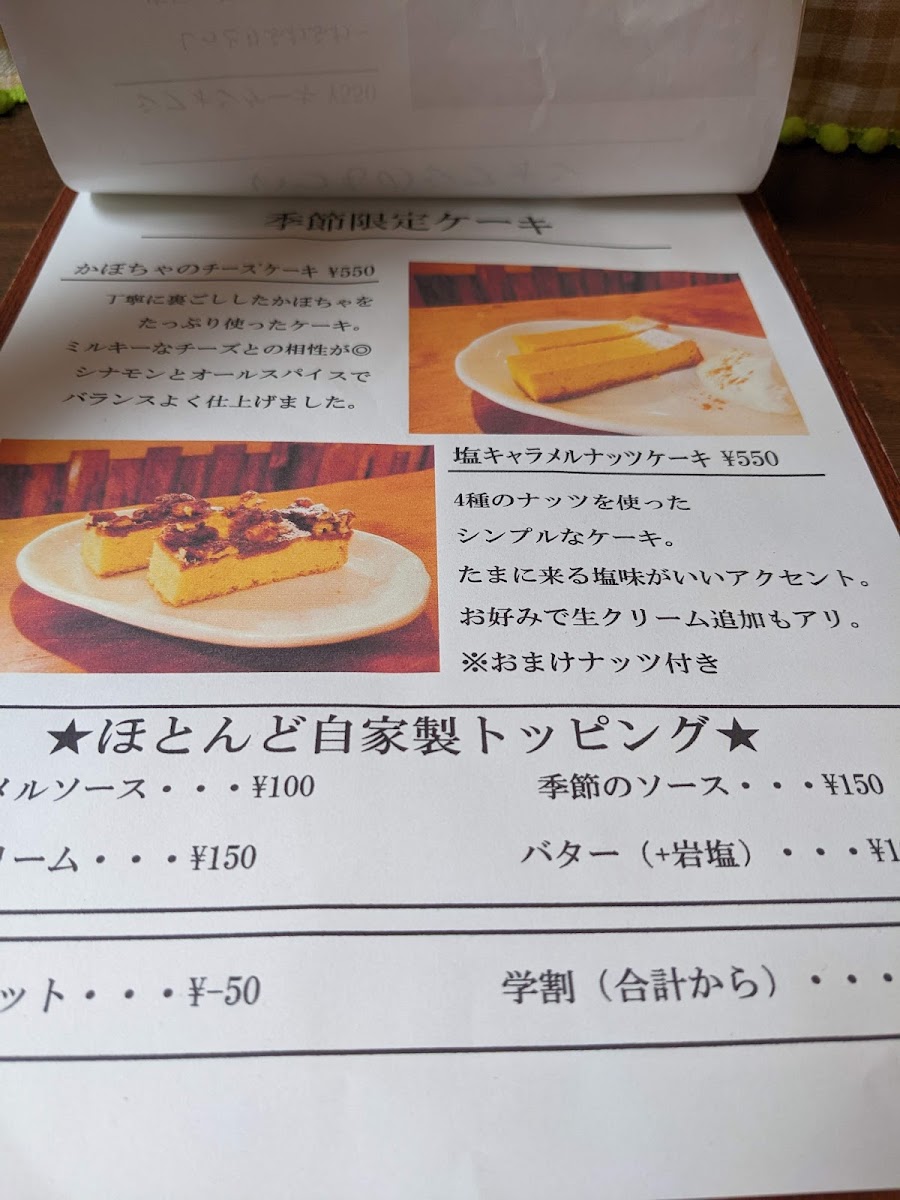 季節限定ケーキ
かぼちゃのチーズケーキ ¥550
丁寧に裏ごししたかぼちゃを
たっぷり使ったケーキ。
ミルキーなチーズとの相性が◎
シナモンとオールスパイスで
バランスよく仕上げました。
塩キャラメルナッツケーキ ¥550
4種のナッツを使った
シンプルなケーキ。
たまに来る塩味がいいアクセント。
お好みで生クリーム追加もアリ。
※おまけナッツ付き
★ほとんど自家製トッピング★
メルソース・・・¥100
季節のソース・・・¥150
リーム・・・¥150
バター（+岩塩）・・・¥1
ット・・・¥-50
学割（合計から）・・・